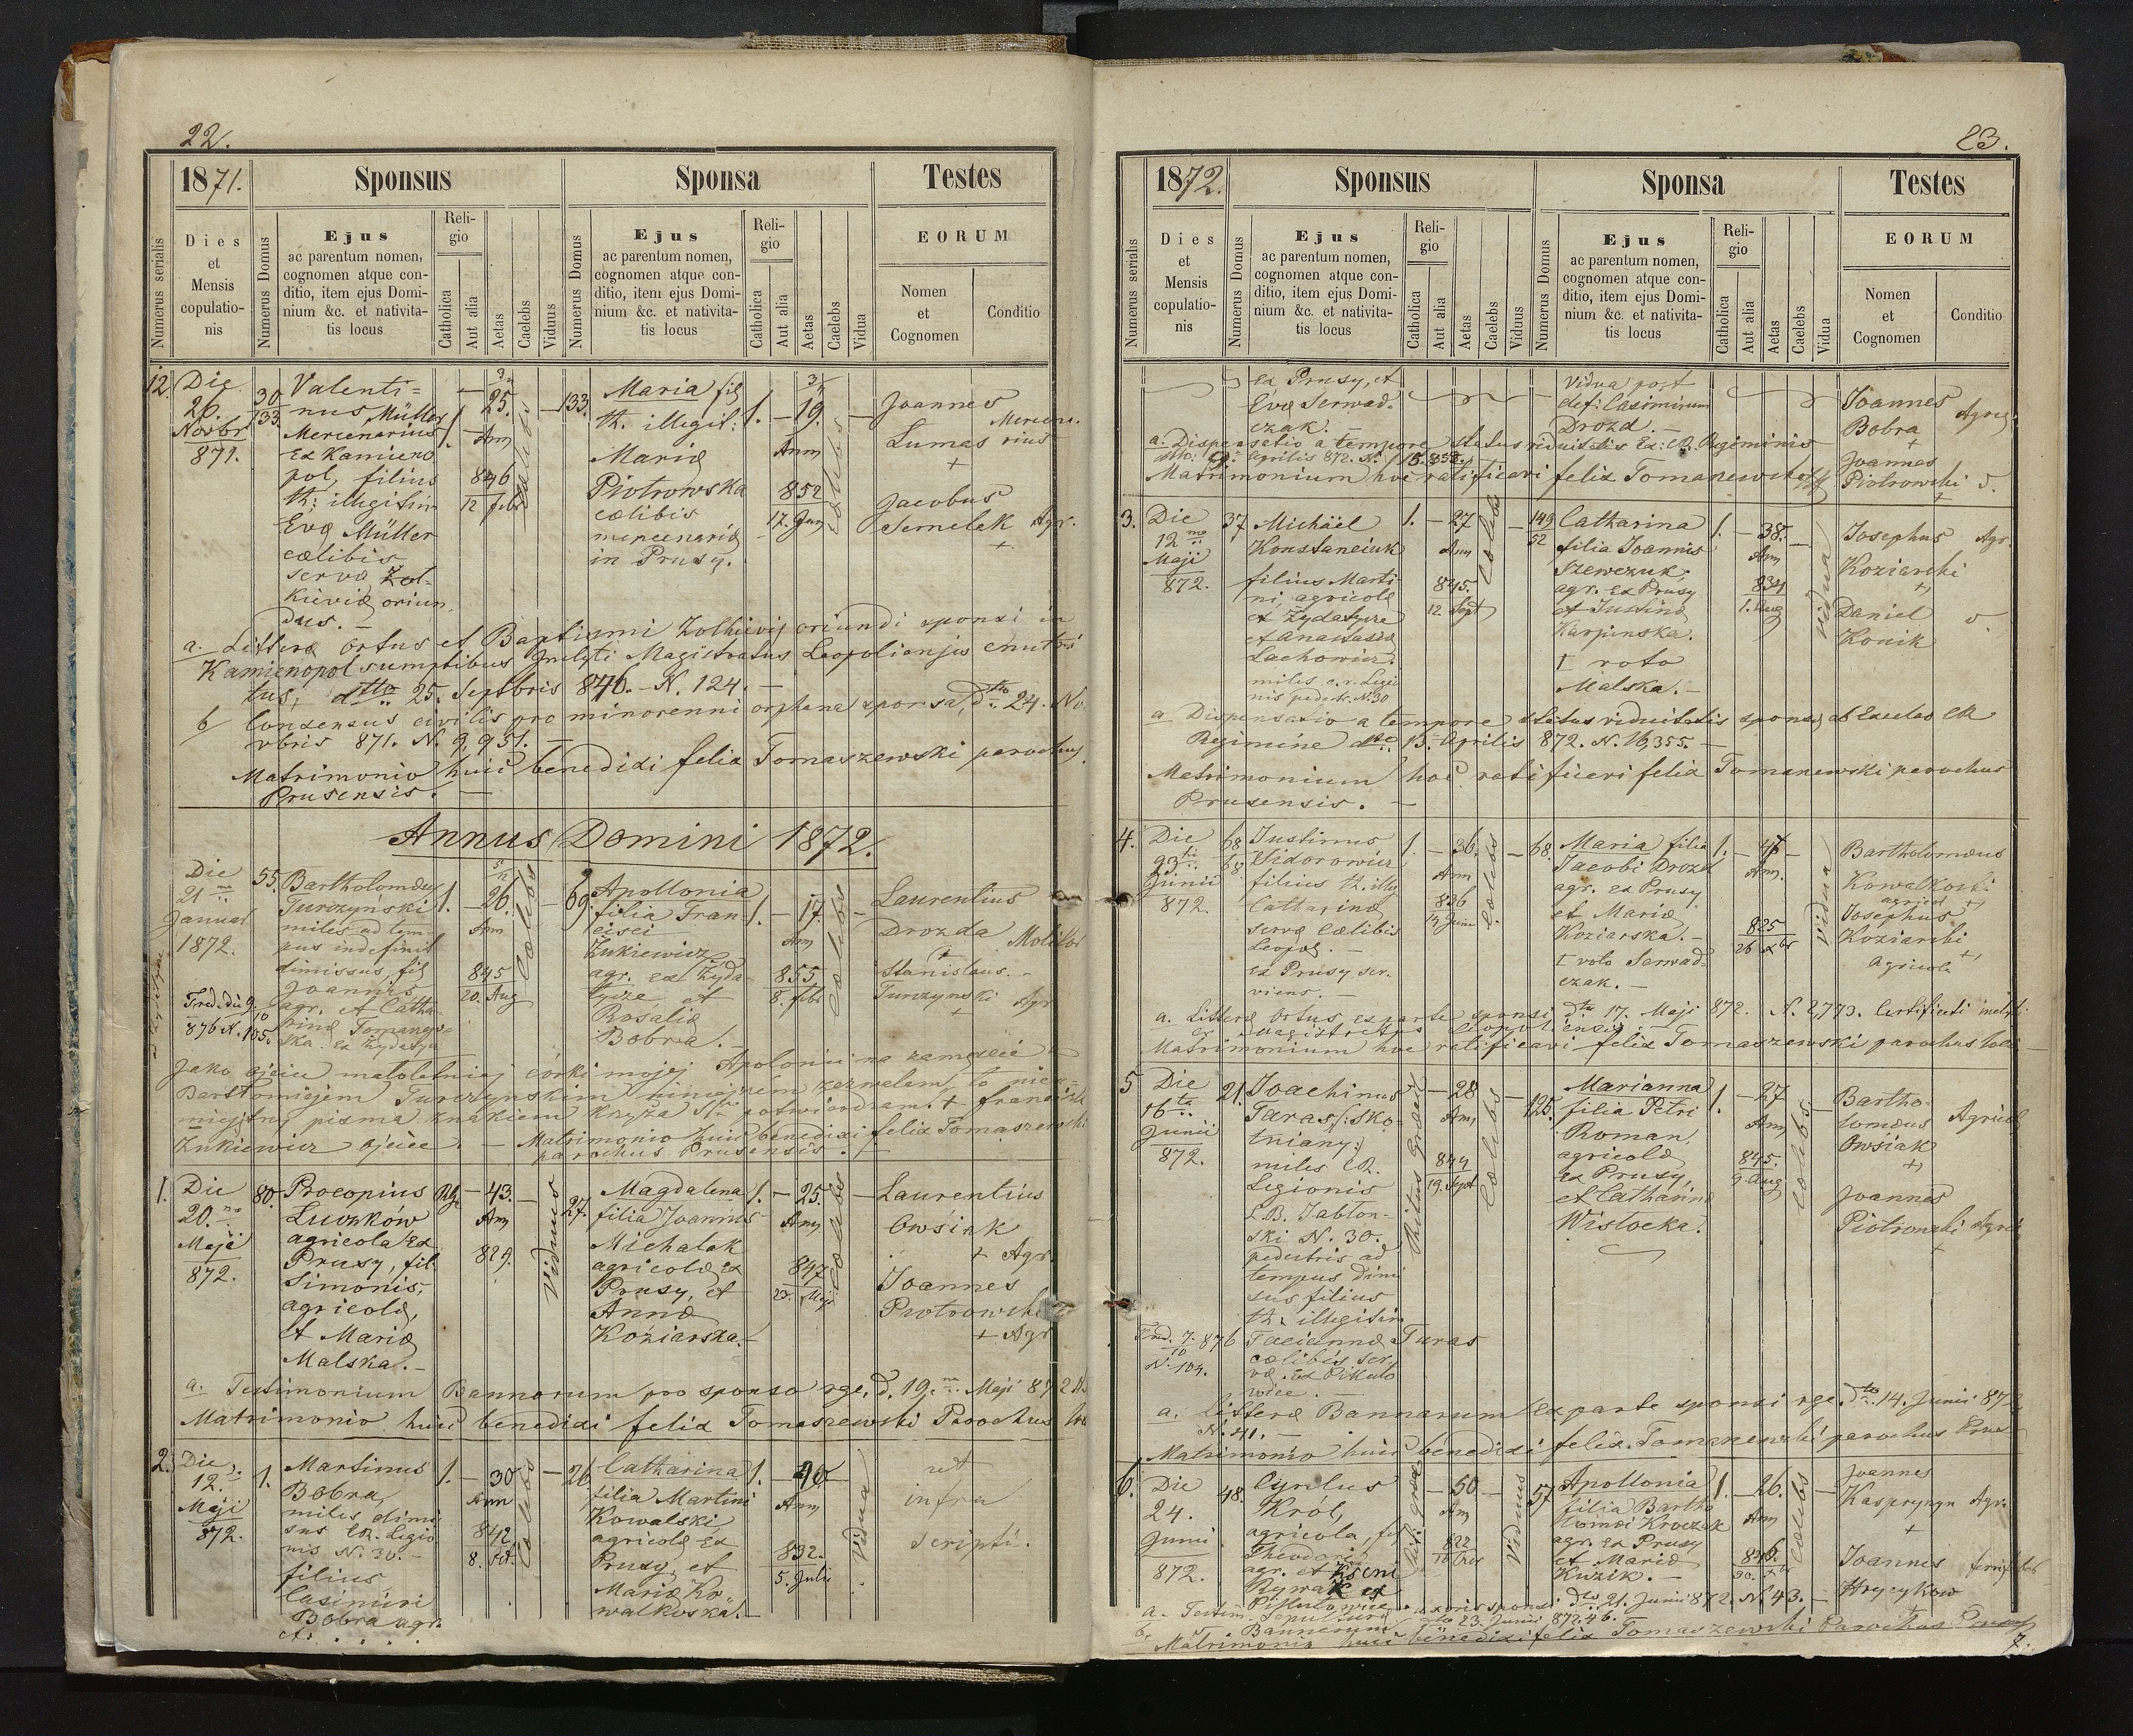 22.
1871.
Sponsus
Sponsa
Testes
Numerus serialis
Dies
et
Mensis
copulatio-
nis
Numerus Domus
Ejus
ac parentum nomen,
cognomen atque con-
ditio, item ejus Domi-
nium &c. et nativita-
tis locus
Reli-
gio
Catholica
Aut alia
Aetas
Caelebs
Viduus
Numerus Domus
Ejus
ac parentum nomen,
cognomen atque con-
ditio, item ejus Domi-
nium &c. et nativita-
tis locus
Reli-
gio
Catholica
Aut alia
Aetas
Caelebs
Vidua
EORUM
Nomen
et
Cognomen
Conditio
12.
Die
26.
Novbr
871.
30
133.
Valenti=
nus Müller
Mercenarius
ex Kamieno
pol, filius
th: illegitim
Evæ Müller
cælibis
servæ Zol-
kieviæ oriun
dus. –
1.
25.
Ann
846
12 febr
cælebs
133.
Maria fil
th. illegit:
Mariæ
Piotrowska
cælibis
mercenariæ
in Prusy.
1.
19.
Ann
852
17. Jan
cælebs
Joannes
Lumas
Mercena
rius
+
Jacobus
Semelak Agr.
+
a. Litteræ ortus et Baptismi Zolkievij oriundi sponsi in
Kamienopol sumptibus Inclyti Magistratus Leopoliensis enutri
tus, dtto 25. Septbris 846. – N. 124. –
b Consensus civilis pro minorenni orphana sponsa, dto 24. No
vbris 871. N. 9,951. –
Matrimonio huic benedixi felix Tomaszewski parochus
Prusensis. –
Annus Domini 1872.
Die
21
Januar
1872.
55.
Bartholomæus
Turczyński
miles ad tem
pus indefinit
dimissus, fil
Joannis
agr. et Catha
rinæ
ex Zydatyce
1.
26.
Ann
845
20. Aug
Cælebs
69.
Apollonia
filia Fran
cisci
Zukiewicz
agr. ex Zyda
tycze et
Rosaliæ
Bobra. –
1.
17.
Ann
855
8. febr
cælebs
Laurentius
Drozda Molitor
+
Stanislaus
Turczynski Agr
+
876 N. 105.
Jako ojciec małoletniej córki mojej Apolonii na zamęzcie z
Bartłomiejem Turczynskim niniejszem zezwalam, to nieu=
miejętny pisma znakiem krzyża Sgo potwierdzam. + franciszek
Zukiewicz ojciec. – Matrimonio huic benedixi felix Tomaszewski
parochus Prusensis. –
1.
Die
20.
Maji
872.
80.
Procopius
Luczków
agricola ex
Prusy, fil.
Simonis,
agricolæ,
et Mariæ
Malska. –
43.
Ann
829.
Viduus
27.
Magdalena
filia Joannis
Michalak
agricolæ ex
Prusy, et
Annæ
Koziarska. –
1.
25.
Ann
847
22. Maji
cælebs
Laurentius
Owsiak
+ Agr.
Joannes
Piotrowski
+ Agr
a. Testimonium Bannorum pro sponso rgc. d. 19. Maji 872
Matrimonio huic benedixi felix Tomaszewski Parochus
2.
Die
12.
Maji
872.
1.
Martinus
Bobra,
miles dimis
sus CR. Legio
nis N. 30. –
filius
Casimiri
Bobra agr.
1.
30
Ann
842
Cælebs
26
Catharina
filia Martini
Kowalski
agricolæ ex
Prusy et
Mariæ Ko
walkoska. –
1.
40
Ann
832.
5. Julii
Vidua
ut
infra
scripti.
23.
1872.
Sponsus
Sponsa
Testes
Numerus serialis
Dies
et
Mensis
copulatio-
nis
Numerus Domus
Ejus
ac parentum nomen,
cognomen atque con-
ditio, item ejus Domi-
nium &c. et nativita-
tis locus
Reli-
gio
Catholica
Aut alia
Aetas
Caelebs
Viduus
Numerus Domus
Ejus
ac parentum nomen,
cognomen atque con-
ditio, item ejus Domi-
nium &c. et nativita-
tis locus
Reli-
gio
Catholica
Aut alia
Aetas
Caelebs
Vidua
EORUM
Nomen
et
Cognomen
Conditio
ex Prusy, et
Evæ Serwad.
czak. –
Vidua post
def: Casimirum
Drozd. –
Joannes
Bobra
Agric
+
Joannes
Piotrowski
+
a. Dispensatio a tempore status viduitatis Ex: CR. Regiminis
Aprilis 872. N.
Matrimonium hoc ratificavi felix Tomaszewski
3.
Die
12
Maji
872.
37
Michäel
Konstanciuk
filius Marti
ni, agricolæ
ex Zydatycze
et Anastasiæ
Lachowicz.
miles c. r. Legio
nis pedestr. N. 30
1.
27
Ann
845.
12 Sept
Cælebs
149
52
Catharina
filia Joannis
Szewczuk,
agr. ex Prusy
et Justinæ
Karpinska.
I voto
Malska. –
1.
38.
Ann
834
1. Aug
Vidua
Josephus Agr.
Koziarski
+
Daniel
Konik
a Dispensatio a tempore status viduitatis sponsæ ab Excelso CR
Regimine dto 13. Aprilis 872. N. 16,355. –
Matrimonium hoc ratificavi felix Tomaszewski parochus
Prusensis. –
4.
Die
23
Junii
872.
68
68.
Justinus
Sidorowicz
filius th. illeg
Catharinæ
servæ cælibis
Leopol. –
ex Prusy ser.
viens. –
1.
36.
Ann
836
14 Junii
Cælebs
68.
Maria filia
Jacobi Drozd
agr. ex Prusy
et Mariæ
Koziarska. –
I voto Serwad
czak. –
1.
Ann.
825
26 xbr
Vidua
Bartholomæus
Kowalkoski
agricol +
Josephus
Koziarski
+
Agricola
a. Litteræ ortus ex parte sponsi dto 17. Maji 872. N. 2,773. Certificati inclyti
Magistratus Leopoliensis. –
Matrimonium hoc ratificavi felix Tomaszewski parochus loci –
5
Die
16
Junii
872.
21.
Joachimus
Taras /: Sko-
tniany:/
miles CR.
Legionis
L.B. Jablon-
ski N. 30.
pedestris ad
tempus dimi
sus filius
th: illegitim
Tacianna Taras
cælibis ser
væ. ex Pikulo
wice. –
Ritus Græci
28
Ann
844
19. Sept
Cælebs
125.
Marianna
filia Petri
Roman,
agricolæ
ex Prusy,
et Catharinæ
Wisłocka.
1.
27
Ann
845.
9 Aug
Cælebs.
Bartho-
lomæus Agricol
Owsiak
+
Joannes
Piotrowski Agric
+
N. 104.
a. Litteræ Bannorum ex parte sponsi rgc. dto 14. Junii 872
N. 41. –
Matrimonio huic benedixi felix Tomaszewski parochus Prus
6.
Die
24.
Junii
872.
48.
Cyrilus
Król,
agricola, fil
Theodori
agr. et Kseni
Rywak ex
Pikulowice
50
Ann
822
Viduus
57
Apollonia
filia Bartho
lomæi Kroczak
agr. ex Prusy
et Mariæ
Kuzik. –
1.
26.
Ann
846.
Cælebs
Joannes
Kaspryszyn Agr.
+
Joannes
Hrycykow
a. Testim. Sepulturæ uxoris sponsi dto 21. Junii 872. N 43. –
b. Bannorum dto 23. Junii 872.46.
Matrimonio huic benedixi felix Tomaszewski Parochus
7.